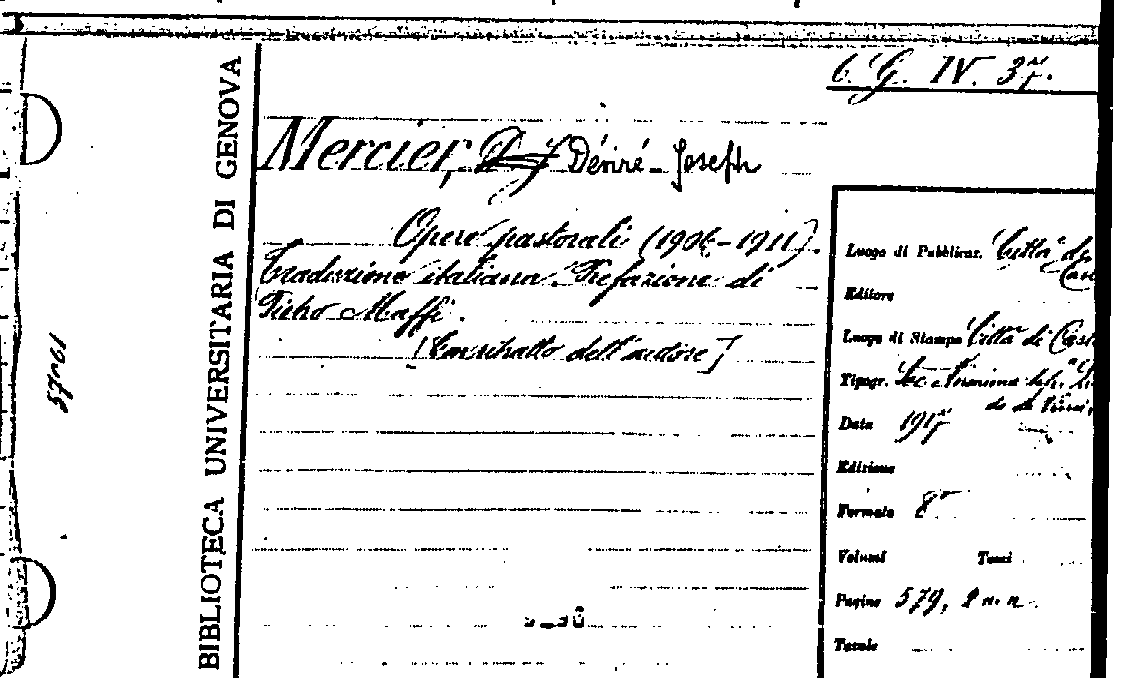 BIBLIOTECA UNIVERSITARIA DI GENOVA
6. G. IV. 37.
Mercier, Désiré - Joseph
Opere pastorali (1906-1911).
Traduzione italiana. Prefazione di
Pietro Maffi.
[Con ritratto dell'autore]
Luogo di Pubblicaz. Città di
Cas
Editore
Luogo di Stampa Città di Cast
Tipogr. Soc.
Data 1917
Edizione
Formato 8°
Volumi Tomi
Pagine 579, 2 n. n.
Totale